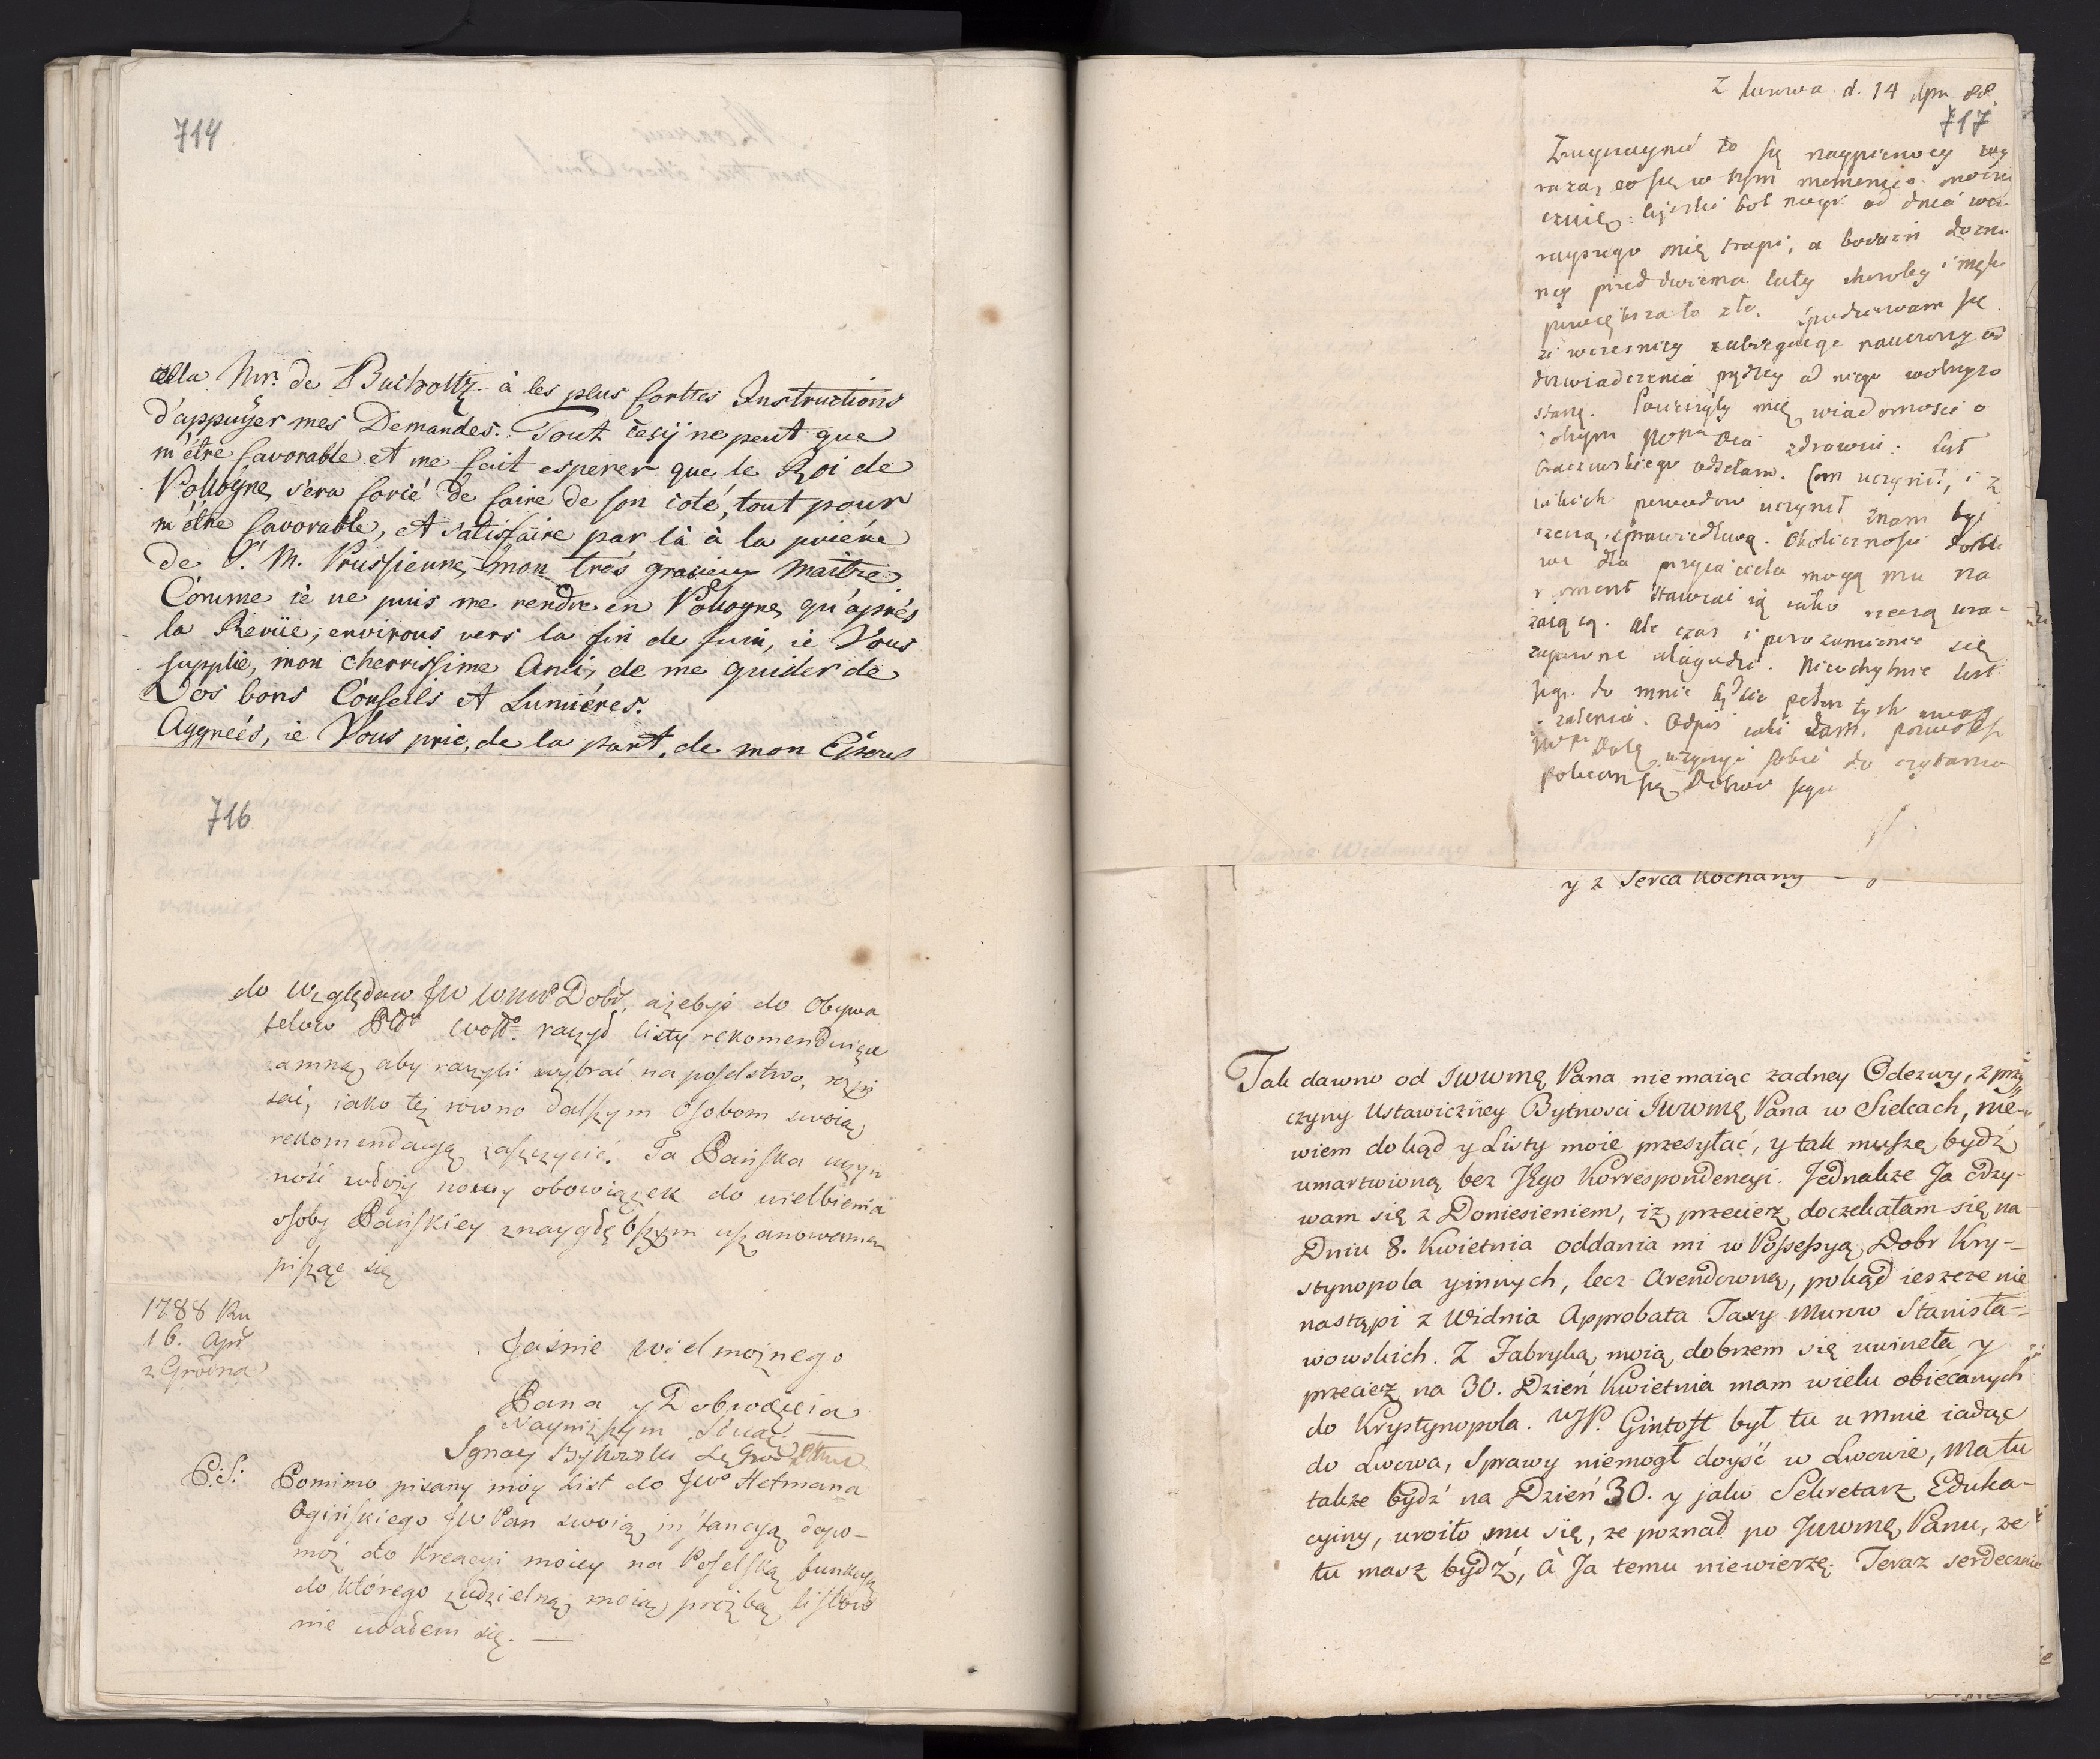 714
cela Mr. de Bucholtz à les plus forttes Instructions
d'appuÿer mes Demandes. Tout ceçÿ ne peut que
m'étre favorable et me fait esperer que le Roi de
Pologne, sera forcé de faire de son coté, tout pour
m'étre favorable, et satisfaire par là à la prière
de S. M. Prussienne, mon trés gracieux Maitre
Comme ie ne puis me rendre en Pologne, qu'après
la Revüe, environs vers la fin de Juin, ie Vous
supplie, mon cherrissime Ami, de me guider de
Vos bons Conseils et Lumiéres.
Aggreés, ie Vous prie, de la part, de mon Epouse
716
do Względow JW WMP Dobr, ażebyś do Obywa
telow raczył listy rekomenduiące
amną, aby raczyli wybrać na poselstwo,
iako też rowno dalszym Osobom swoią
rekomendacyą zaszczycić. Ta Pańska uczyn
ność nowy obowiązek do wielbienia
osoby Pańskiey z naygłębszym uszanowaniem
pisząc się
1788 Ru
16. Apr
z Grodna
Jaśnie Wielmożnego
Pana y Dobrodzieia
Nayniższym Sługą
Ignacy Bykowski
P:S: Pomimo pisany móy List do JWo Hetmana
Ogińskiego JW Pan swoią instancyą dopo-
moż do Kreacyi moiey na Poselską funkcyą
do którego z udzielną moią prożbą listow
nie udałem się. —
Z d. 14 88
717
to się naypierwey wy
raża, co się w tym momencie
ból nogi od dnia wczo-
rayszego mię trapi, a bojaźń
przed dwiema laty choroby i męki
powiększa to zło. spodziewam się
że wcześniey nauczony od
doświadczenia prędzey od niego wolnym
stanę. mię wiadomości o
zdrowiu: list
odsełam. Com uczynił, i z
iakich powodow uczynił mam być
rzeczą sprawiedliwą. Okoliczności
dla przyiaciela mogą mu na
moment stawiać ią iako rzeczą ura-
żaiącą. ale czas i porozumienie się
zapewne ułagodzi. Nieochybnie list
Jego do mnie będzie pełen tych uwag
i żalenia. Odpis iaki dam,
do czytania
polecam się
y z Serca Kochany
Tak dawno od JWWMę Pana niemaiąc żadney Odezwy, z przy
czyny Ustawiczney Bytności JWWMę Pana w Sielcach, nie-
wiem dokąd y Listy moie przesyłać, y tak muszę bydź
umartwioną bez JEgo Korrespondencyi. Jednakże Ja Odzy-
wam się z Doniesieniem, iż przecierz doczekałam się na
Dniu 8. Kwietnia oddania mi w Possessyą Dobr Kry-
stynopola y innych, lecz Arendowną, pokąd ieszcze nie
nastąpi z Widnia Approbata Taxy Murow Stanisła-
wowskich. Z Fabryką moią dobrzem się uwineła y
przecież na 30. Dzień Kwietnia mam wielu obiecanych
do Krystynopola. WJP. Gintoft był tu u mnie iadąc
do Lwowa, Sprawy niemogł doyść w Lwowie, Ma tu
także bydź na Dzień 30. y jako Sekretarz Eduka-
cyiny, uroiło mu się, że poznał po JWWMę Panu, że
tu masz bydź, à Ja temu niewierzę. Teraz serdecznie